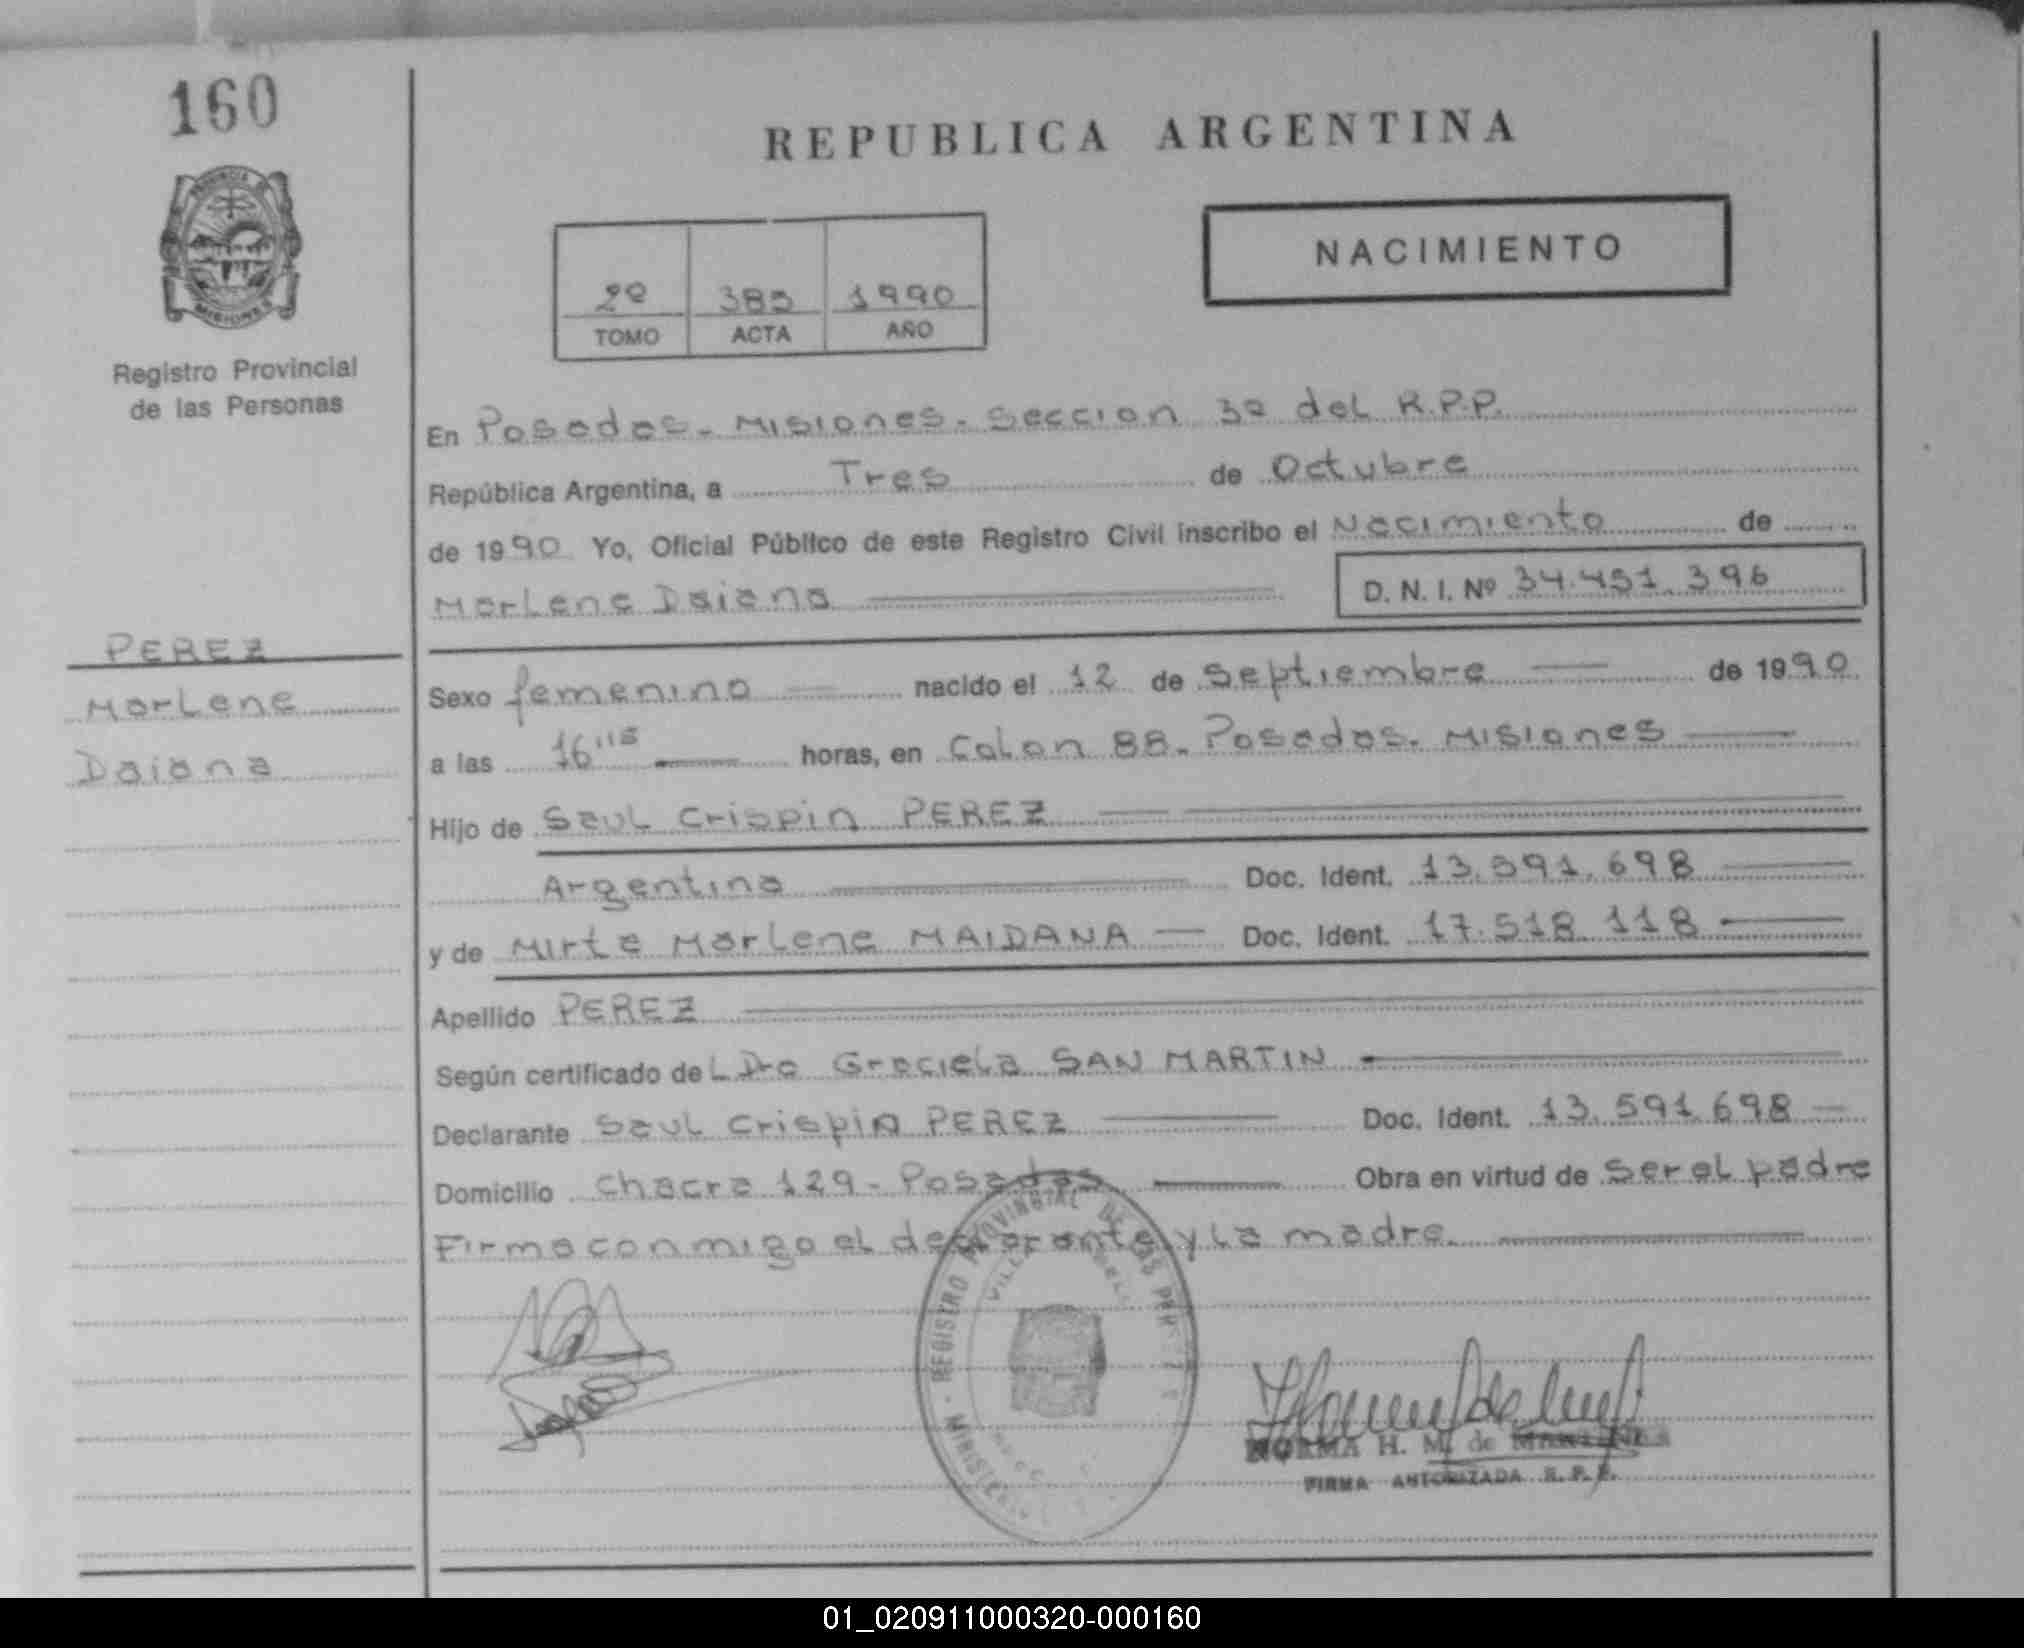 160
REPUBLICA ARGENTINA
PROVINCIA DE
MISIONES
NACIMIENTO
2º 385 1990
TOMO ACTA AÑO
Registro Provincial
de las Personas
En Posadas - Misiones. Seccion 3º del R.P.P.
República Argentina, a Tres de Octubre
de 1990 Yo, Oficial Público de este Registro Civil inscribo el Nacimiento de
Marlene Daiana D. N. I. Nº 34.451.396
PEREZ
Marlene
Daiana
Sexo femenino nacido el 12 de Septiembre de 1990
a las 16 115 horas, en Colon 88. Posadas. Misiones
Hijo de Saul Crispin PEREZ
Argentina Doc. Ident. 13.591.698
y de Mirta Marlene MAIDANA Doc. Ident. 17.518.118
Apellido PEREZ
Según certificado de L Dra Graciela SAN MARTIN
Declarante Saul Crispin PEREZ Doc. Ident. 13.591.698
Domicilio Chacra 129 - Posadas Obra en virtud de Ser el padre
Firma conmigo el declarante y la madre.
REGISTRO PROVINCIAL DE LAS PER
MINISTERIO
NORMA H. M. de MARTINEZ
FIRMA AUTORIZADA R. P. P.
01_020911000320-000160